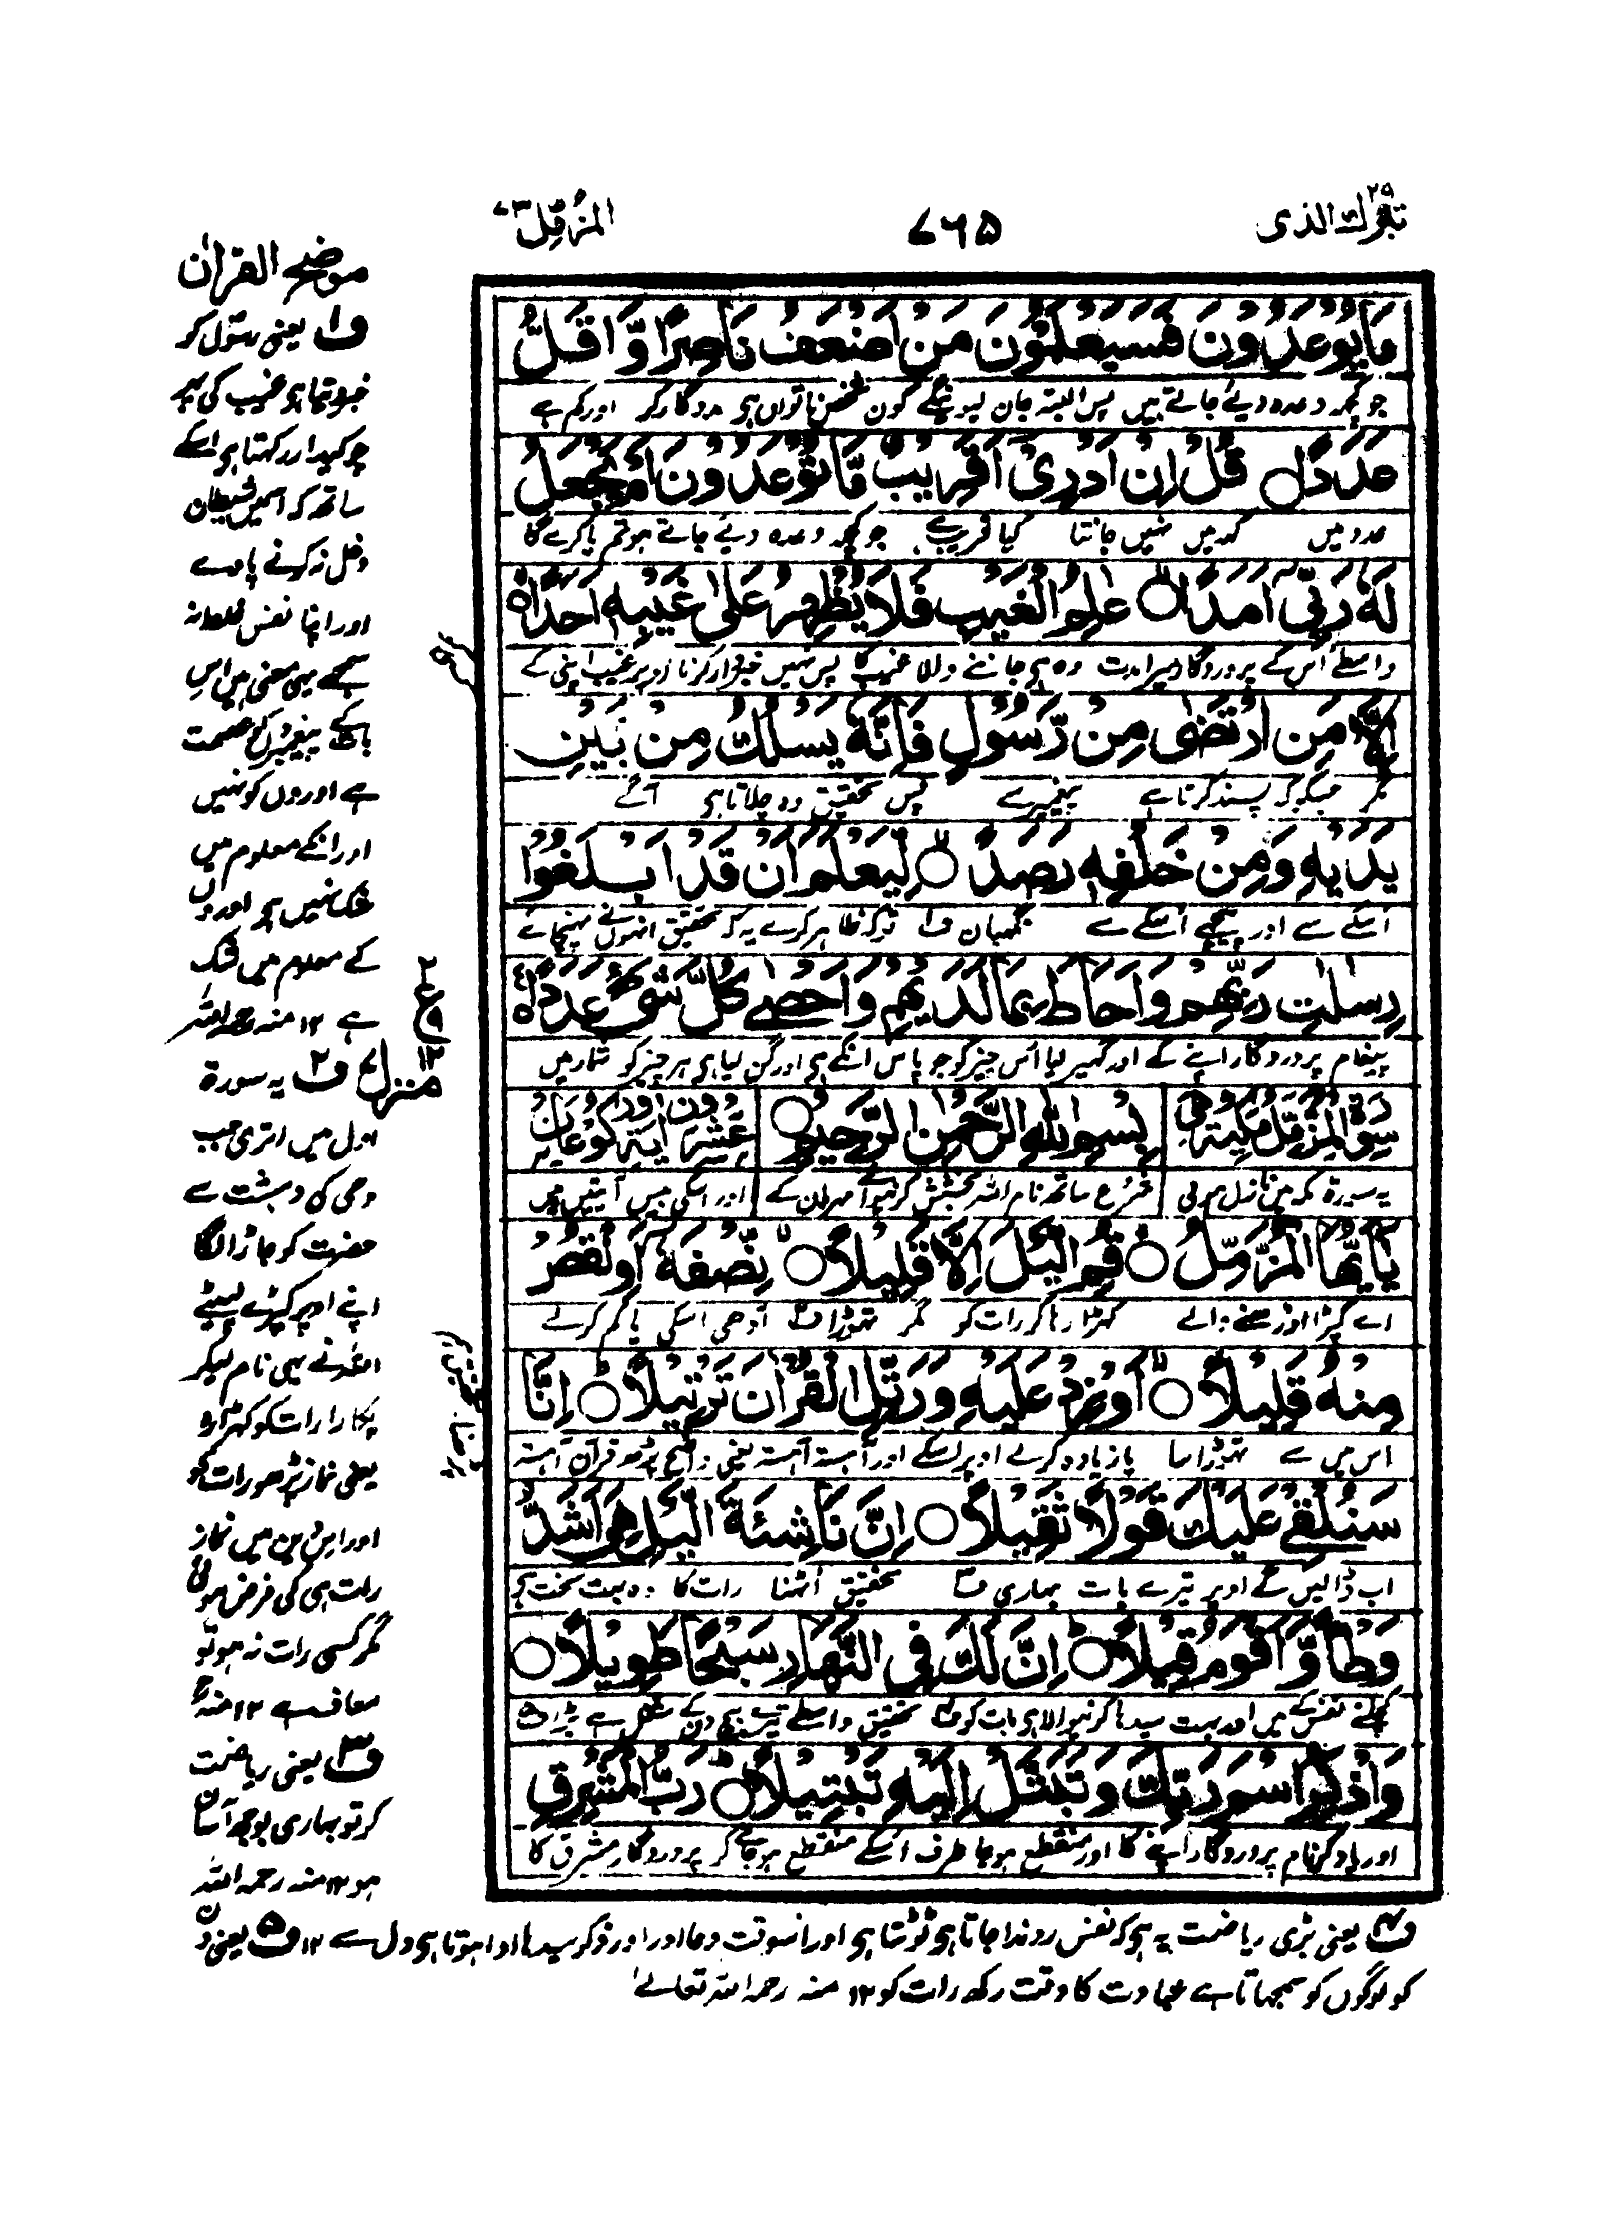 تبٰرك الذى ٢٩
٧٦٥
المزمّل ٧٣
مَا يُوعَدُونَ فَسَيَعْلَمُونَ مَنْ أَضْعَفُ نَاصِرًا وَّأَقَلُّ
جو کچھ وعدہ دیئے جاتے ہیں پس البتہ جان لیوینگے کون شخص ناتواں ہی مددگار کر اور کم ہے
عَدَدًا ○ قُلْ إِنْ أَدْرِىٓ أَقَرِيبٌ مَّا تُوعَدُونَ أَمْ يَجْعَلُ
عدد میں کہہ میں نہیں جانتا کیا قریب ہے جو کچھ وعدہ دیئے جاتے ہو تم یا کرے گا
لَهٗ رَبِّىٓ أَمَدًا ○ عٰلِمُ الْغَيْبِ فَلَا يُظْهِرُ عَلٰى غَيْبِهٖٓ أَحَدًا ○
واسطے اس کے پروردگار میرا مدت وہ ہی جاننے والا غیب کا پس نہیں خبردار کرتا اوپر غیب اپنی کے
إِلَّا مَنِ ارْتَضٰى مِنْ رَّسُولٍ فَإِنَّهٗ يَسْلُكُ مِنْۢ بَيْنِ
مگر جسکو کہ پسند کرتا ہے پیغمبر سے پس تحقیق وہ چلاتا ہی آگے
يَدَيْهِ وَمِنْ خَلْفِهٖ رَصَدًا ○ لِّيَعْلَمَ أَنْ قَدْ أَبْلَغُوا
اسکے سے اور پیچھے اسکے سے نگہبان ف١ توکہ ظاہر کرے یہ کہ تحقیق انہوں نے پہنچائے
رِسٰلٰتِ رَبِّهِمْ وَأَحَاطَ بِمَا لَدَيْهِمْ وَأَحْصٰى كُلَّ شَىْءٍ عَدَدًا ○
پیغام پروردگار اپنے کے اور گھیر لیا اس چیز کو جو پاس انکے ہی اور گن لیا ہی ہر چیز کو شمار میں
سورة المزمل مكية وهى
بِسْمِ اللّٰهِ الرَّحْمٰنِ الرَّحِيمِ ○
عشرون اية وركوعان
یہ سورۃ مکہ میں نازل ہوئی
شروع ساتھ نام اللہ بخشش کرنیوالے مہربان کے
اور اسکی بیس آیتیں ہیں
يٰٓأَيُّهَا الْمُزَّمِّلُ ○ قُمِ الَّيْلَ إِلَّا قَلِيلًا ○ نِّصْفَهٗٓ أَوِ انْقُصْ
اے کپڑا اوڑھنے والے کھڑا رہا کر رات کو مگر تھوڑا ف٢ آدھی اسکی یا کم کرلے
مِنْهُ قَلِيلًا ○ أَوْ زِدْ عَلَيْهِ وَرَتِّلِ الْقُرْاٰنَ تَرْتِيلًا ○ إِنَّا
اس میں سے تھوڑا سا یا زیادہ کرلے اوپر اسکے اور آہستہ آہستہ یعنی واضح پڑھ قرآن آہستہ
سَنُلْقِى عَلَيْكَ قَوْلًا ثَقِيلًا ○ إِنَّ نَاشِئَةَ الَّيْلِ هِىَ أَشَدُّ
اب ڈالیں گے اوپر تیرے بات بھاری ف٣ تحقیق اٹھنا رات کا وہ بہت سخت ہی
وَطْـًٔا وَّأَقْوَمُ قِيلًا ○ إِنَّ لَكَ فِى النَّهَارِ سَبْحًا طَوِيلًا ○
کچلنے نفس کے میں اور بہت سیدھا کرنیوالا ہی بات کو ف٤ تحقیق واسطے تیرے بیچ دن کے شغل ہے بڑا ف٥
وَاذْكُرِ اسْمَ رَبِّكَ وَتَبَتَّلْ إِلَيْهِ تَبْتِيلًا ○ رَبُّ الْمَشْرِقِ
اور یاد کر نام پروردگار اپنے کا اور منقطع ہوجا طرف اسکے منقطع ہوجانے کر پروردگار مشرق کا
موضح القرآن
ف١ یعنی رسول کو
خبر دیتا ہی غیب کی پہر
چوکیدار رکہتا ہی اسکے
ساتھ کہ اسمیں شیطان
دخل نہ کرنے پاوے
اور اپنا نفس غلط نہ
سمجھے یہی معنی ہیں اس
بات کے پیغمبروں کو عصمت
ہے اوروں کو نہیں
اور انکے معلوم میں
شک نہیں ہی اور وں
کے معلوم میں شک
ہے ١٢ منہ رحمہ اللہ
ع
١٢
منزل ٧
ف٢ یہ سورۃ
اول میں اتری جب
وحی کی دہشت سے
حضرت کو جاڑا لگا
اپنے اوپر کپڑے لپیٹے
اللہ نے یہی نام لیکر
پکارا رات کو کھڑا رہ
یعنی نماز پڑھ رات کو
اور اس دین میں نماز
رات ہی کی فرض ہوئی
مگر کسی رات نہ ہو تو
معاف ہے ١٢ منہ
ف٣ یعنی ریاضت
کر تو بھاری بوجھ آسان
ہو ١٢ منہ رحمہ اللہ
ف٤ یعنی بڑی ریاضت یہ ہی کہ نفس روندا جاتا ہی ٹوٹتا ہی اور اسوقت دعا اور اور ذکر سیدھا ادا ہوتا ہی دل سے ١٢ ف٥ یعنی دن
کو لوگوں کو سمجھاتا ہے عبادت کا وقت رکھ رات کو ١٢ منہ رحمہ اللہ تعالےٰ